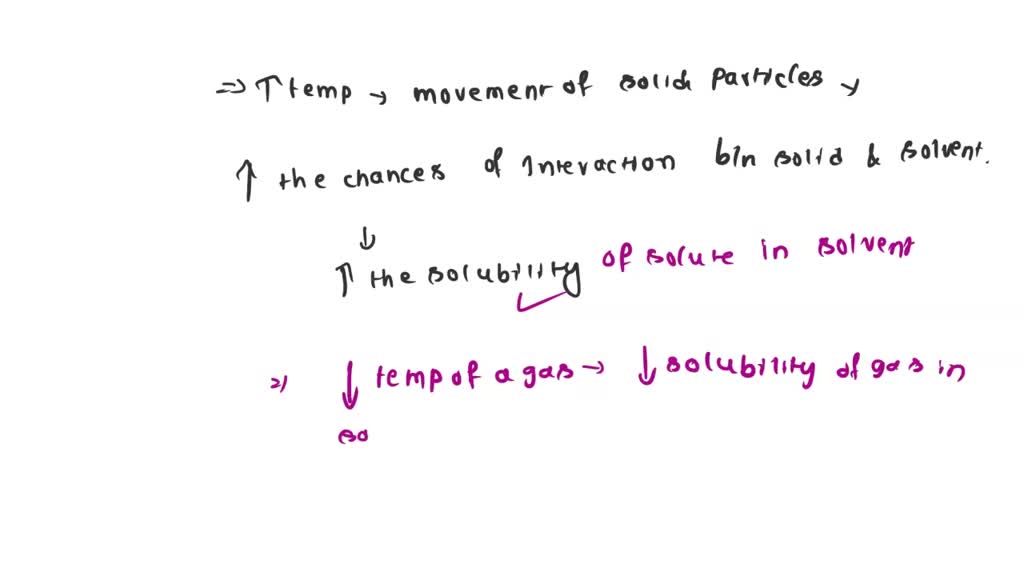 ⇒ ↑ temp → movement of solid particles →
↑ the chances of Interaction b/n solid & solvent.
↓
↑ the solubility of solute in solvent
2) ↓ temp of a gas → ↓ solubility of gas in
so